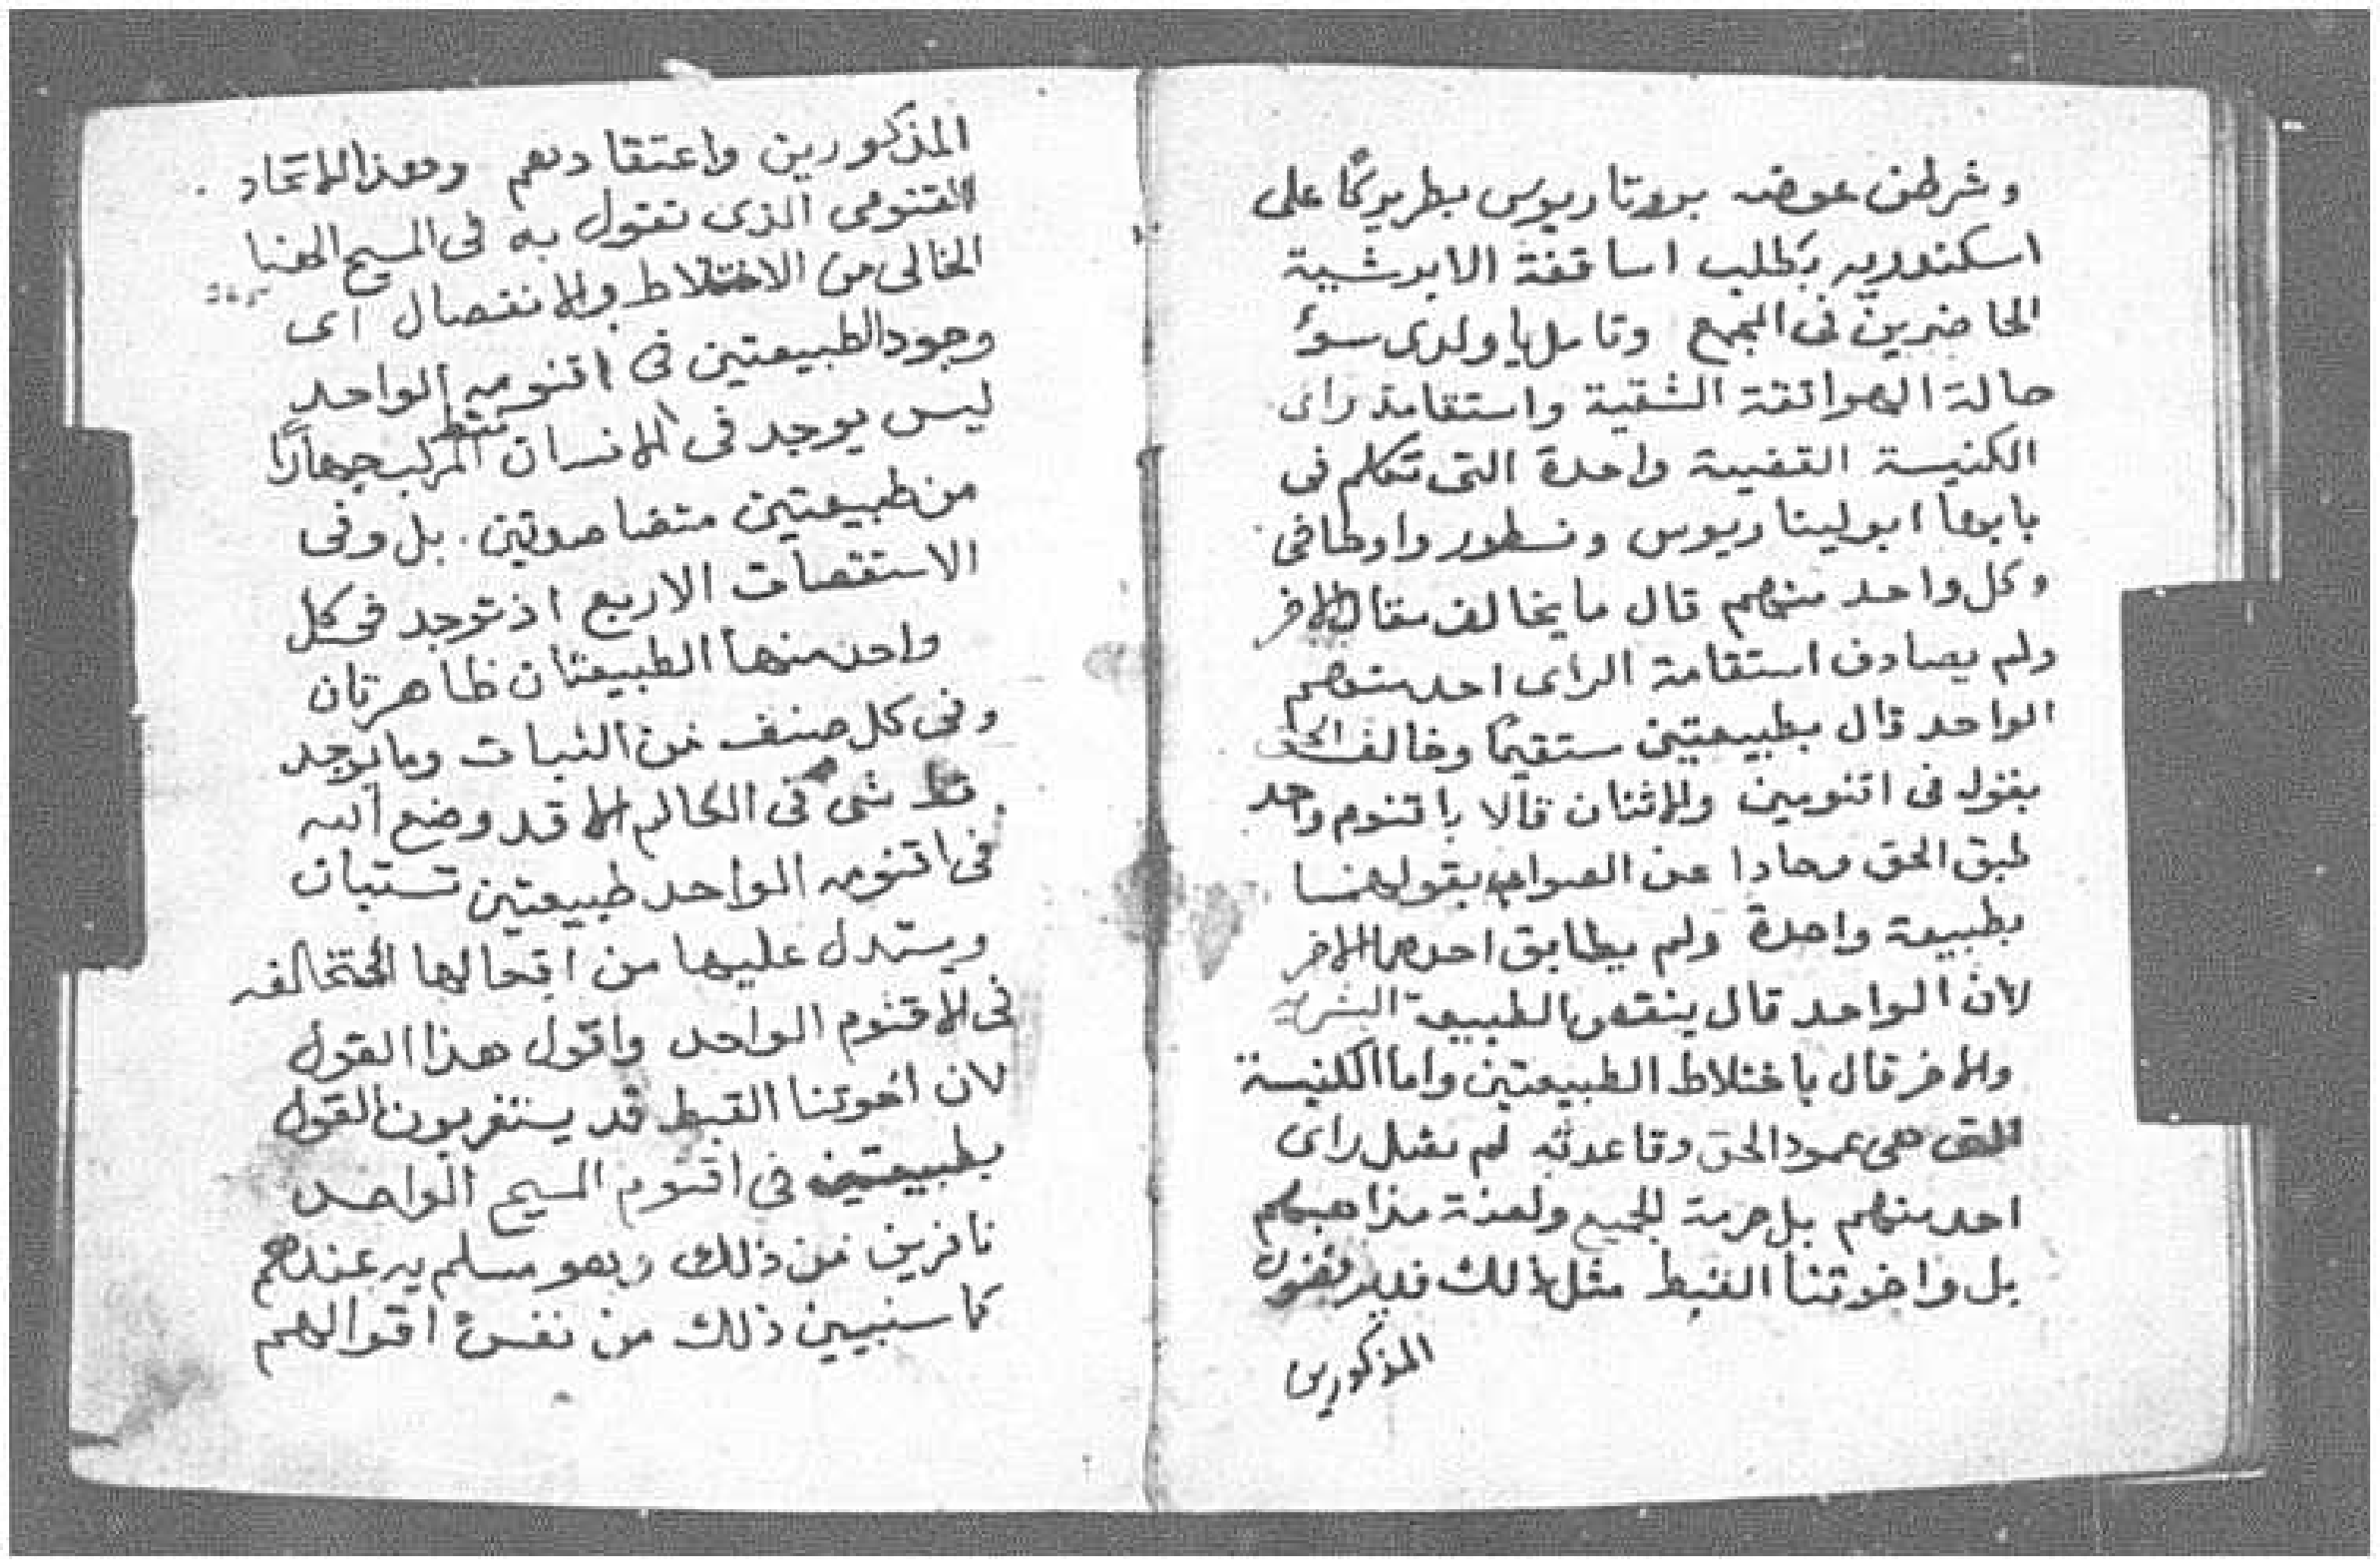 وشرطن عوضه بروتاريوس بطريركًا على
اسكندريه بطلب اساقفة الابرشية
الحاضرين فى المجمع وتامل يا ولدى سوء
حالة الهراتقة الشقية واستقامة راى
الكنيسة القضية واحدة التى تكلم فى
بابها ابوليناريوس ونسطور واوطاخى
وكل واحد منهم قال ما يخالف مقال الاخر
ولم يصادف استقامة الراى احد منهم
الواحد قال بطبيعتين مستقيمًا وخالف الحق
بقوله فى اقنومين والاثنان قالا باقنوم واحد
طبق الحق وحادا عن الصواب بقولهما
بطبيعة واحدة ولم يطابق احدهما الاخر
لان الواحد قال بنقص الطبيعة البشرية
والاخر قال باختلاط الطبيعتين واما الكنيسة
التى هى عمود الحق وقاعدته لم تقبل راى
احد منهم بل حرمة الجميع ولعنة مذاهبهم
بل واخوتنا القبط مثل ذلك قد يرفضون
المذكورين
المذكورين واعتقادهم وهذا الاتحاد
القنومى الذى نقول به فى المسيح الهنا
الخالى من الاختلاط والانفصال اى
وجود الطبيعتين فى اقنومه الواحد
ليس يوجد فى الانسان فقط المركب جهارًا
من طبيعتين متضاددتين . بل وفى
الاستقصات الاربع اذ توجد فى كل
واحد منها الطبيعتان ظاهرتان
وفى كل صنف من النبات وما يوجد
قط شى فى العالم الا قد وضع الله
فى اقنومه الواحد طبيعتين تستبان
ويستدل عليها من افعالها المتخالفه
فى الاقنوم الواحد واقول هذا القول
لان اخوتنا القبط قد يستغربون القول
بطبيعتين فى اقنوم المسيح الواحد
نافرين من ذلك وهو مسلم به عندهم
كما سنبيين ذلك من نفس اقوالهم